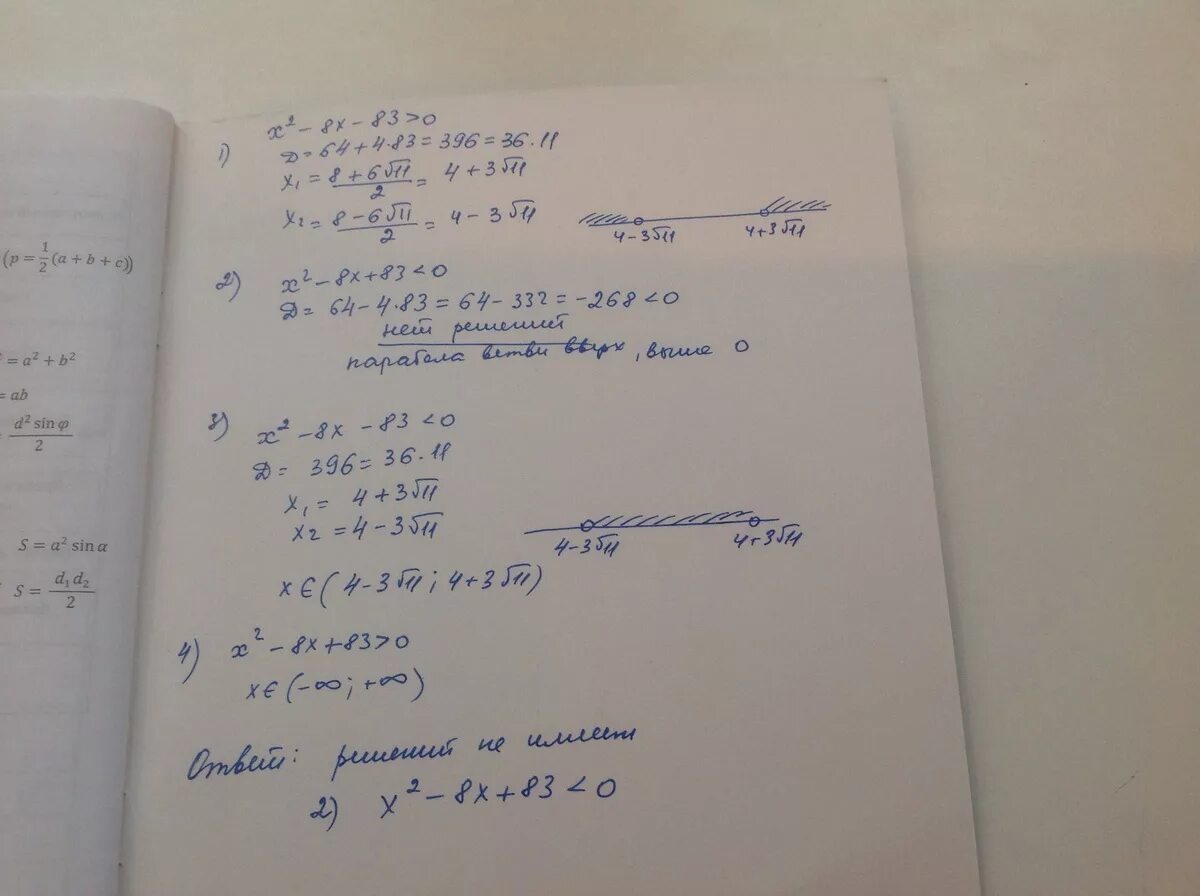 (p = 1/2 (a + b + c))
= a² + b²
= ab
d² sin φ / 2
S = a² sin α
S = d₁d₂ / 2
1) x² - 8x - 83 > 0
Д = 64 + 4·83 = 396 = 36·11
x₁ = (8 + 6√11) / 2 = 4 + 3√11
x₂ = (8 - 6√11) / 2 = 4 - 3√11
4-3√11 4+3√11
2) x² - 8x + 83 < 0
Д = 64 - 4·83 = 64 - 332 = -268 < 0
нет решений
парабола ветви вверх, выше 0
3) x² - 8x - 83 < 0
Д = 396 = 36·11
x₁ = 4 + 3√11
x₂ = 4 - 3√11
4-3√11 4+3√11
x ∈ (4-3√11; 4+3√11)
4) x² - 8x + 83 > 0
x ∈ (-∞; +∞)
Ответ: решений не имеет
2) x² - 8x + 83 < 0